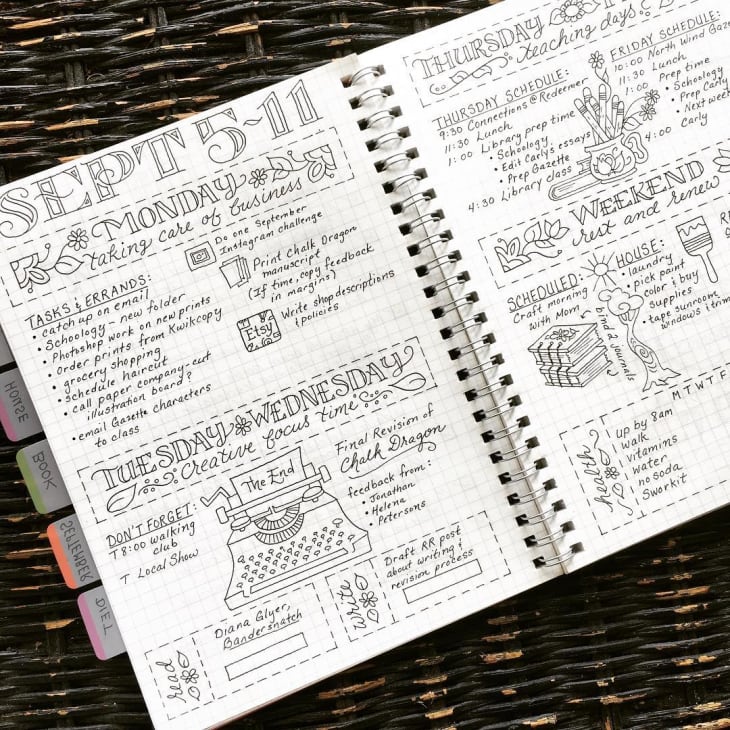 SEPT 5-11
MONDAY
taking care of business
TASKS & ERRANDS:
• catch up on email
• Schoology - new folder
• Photoshop work on new prints
• Order prints from Kwikcopy
• grocery shopping
• schedule haircut
• call paper company - cut
illustration board?
• email Gazette characters
to class
Do one September
Instagram challenge
Print Chalk Dragon
manuscript
(If time, copy feedback
in margins)
Etsy
Write shop descriptions
& policies
TUESDAY WEDNESDAY
Creative focus time
DON'T FORGET:
T 8:00 walking
club
T Local Show
The End
Final Revision of
Chalk Dragon
feedback from:
• Jonathan
• Helena
• Petersons
read
Diana Glyer,
Bandersnatch
write
Draft RR post
about writing &
revision process
THURSDAY
teaching days
THURSDAY SCHEDULE:
9:30 Connections @ Redeemer
11:30 Lunch
1:00 Library prep time
• Schoology
• Edit Carly's essays
• Prep Gazette
4:30 Library class
FRIDAY SCHEDULE:
10:00 North Wind
11:30 Lunch
1:00 Prep time
• Schoology
• Prep Carly
• Next week
4:00 Carly
WEEKEND
rest and renew
SCHEDULED:
Craft morning
with Mom
bind 2 journals
HOUSE:
• laundry
• pick paint
color & buy
supplies
• tape sunroom
windows & trim
M T W T F
health
up by 8am
walk
vitamins
water
no soda
Sworkit
HOUSE
BOOK
SEPTEMBER
DIET